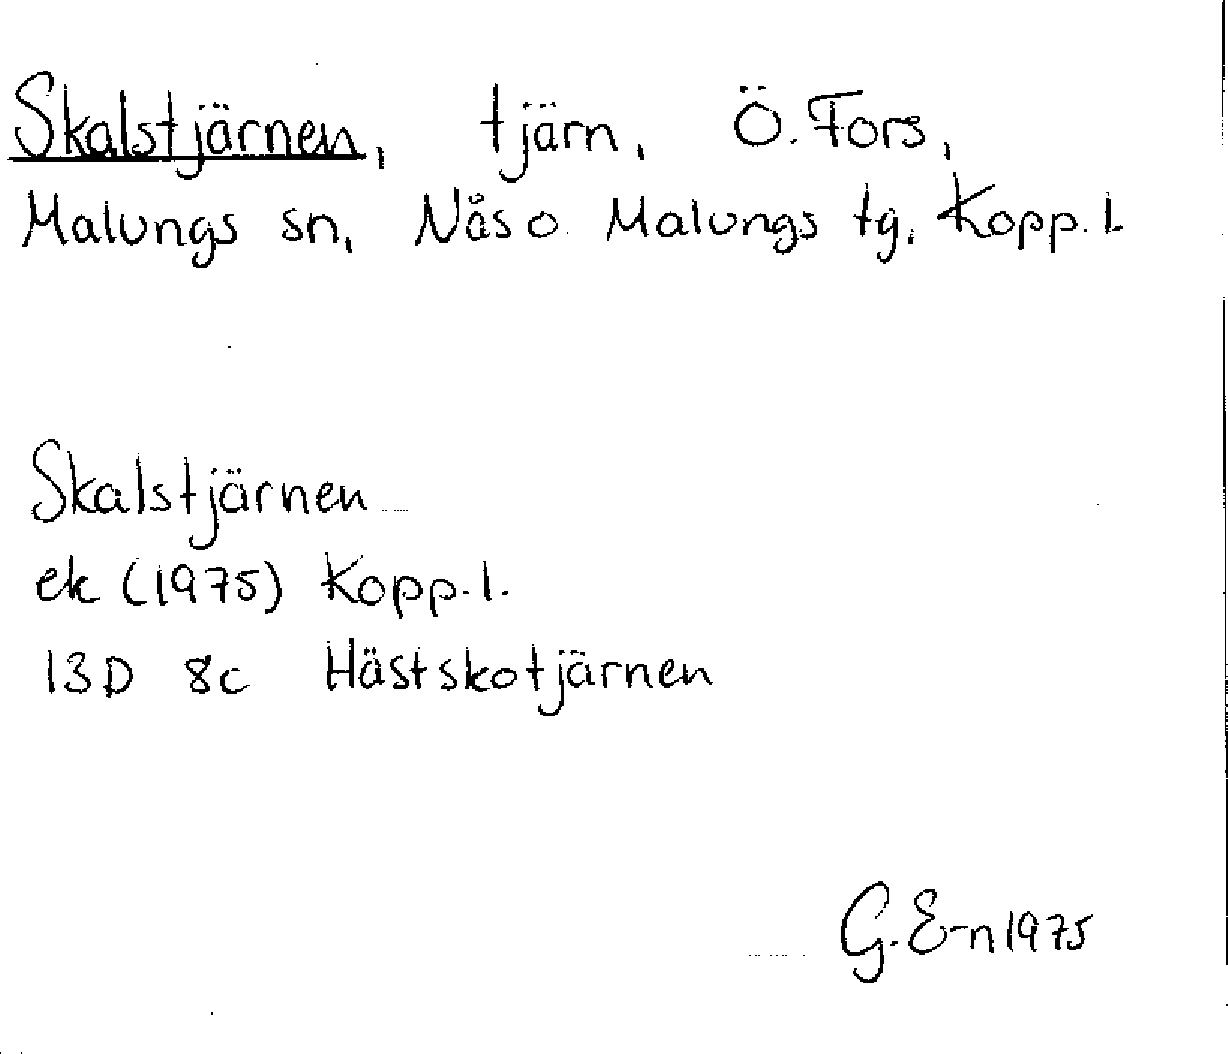 Skalstjärnen, tjärn, Ö. Fors,
Malungs sn, Nås o. Malungs tg, Kopp. l.
Skalstjärnen
ek (1975) Kopp. l.
13D 8c Hästskotjärnen
G. E-n 1975